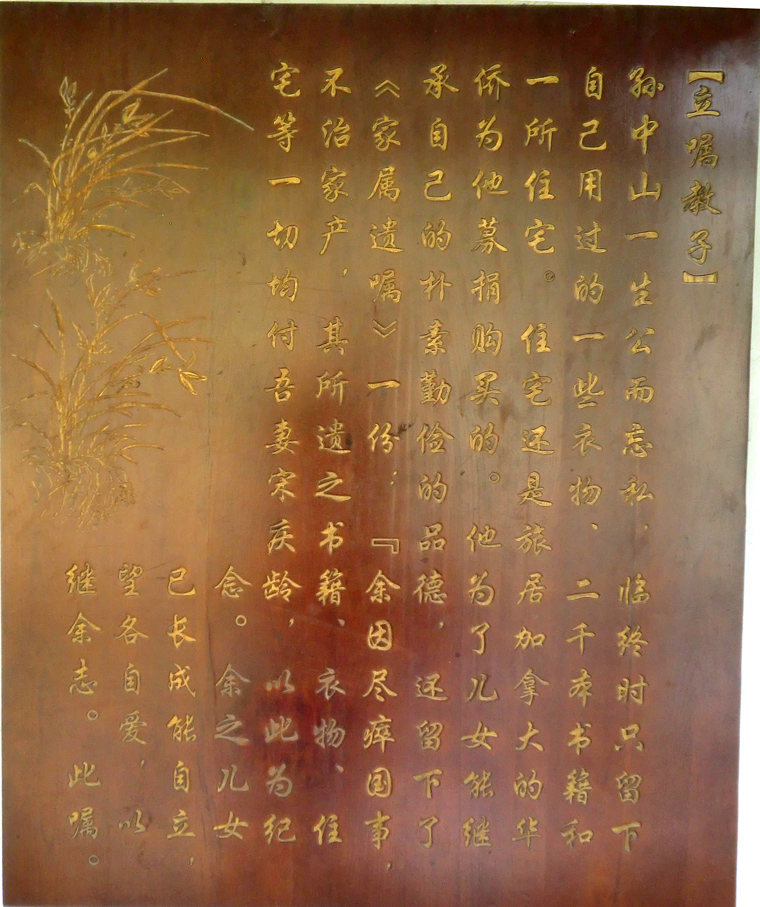 【立嘱教子】
孙中山一生公而忘私，临终时只留下
自己用过的一些衣物、二千本书籍和
一所住宅。住宅还是旅居加拿大的华
侨为他募捐购买的。他为了儿女能继
承自己的朴素勤俭的品德，还留下了
《家属遗嘱》一份：『余因尽瘁国事，
不治家产，其所遗之书籍、衣物、住
宅等一切均付吾妻宋庆龄，以此为纪
念。余之儿女
已长成能自立，
望各自爱，以
继余志。此嘱。